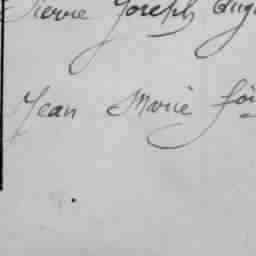 Pierre Joseph
Jean Marie